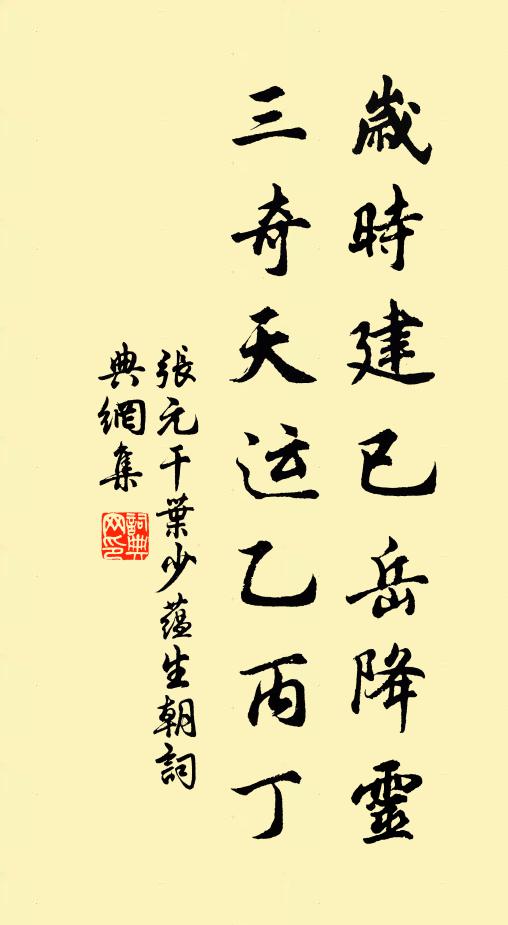 歲時建巳岳降靈
三奇天运乙丙丁
張元干葉少蕴生朝詞
典網集
詞典網印